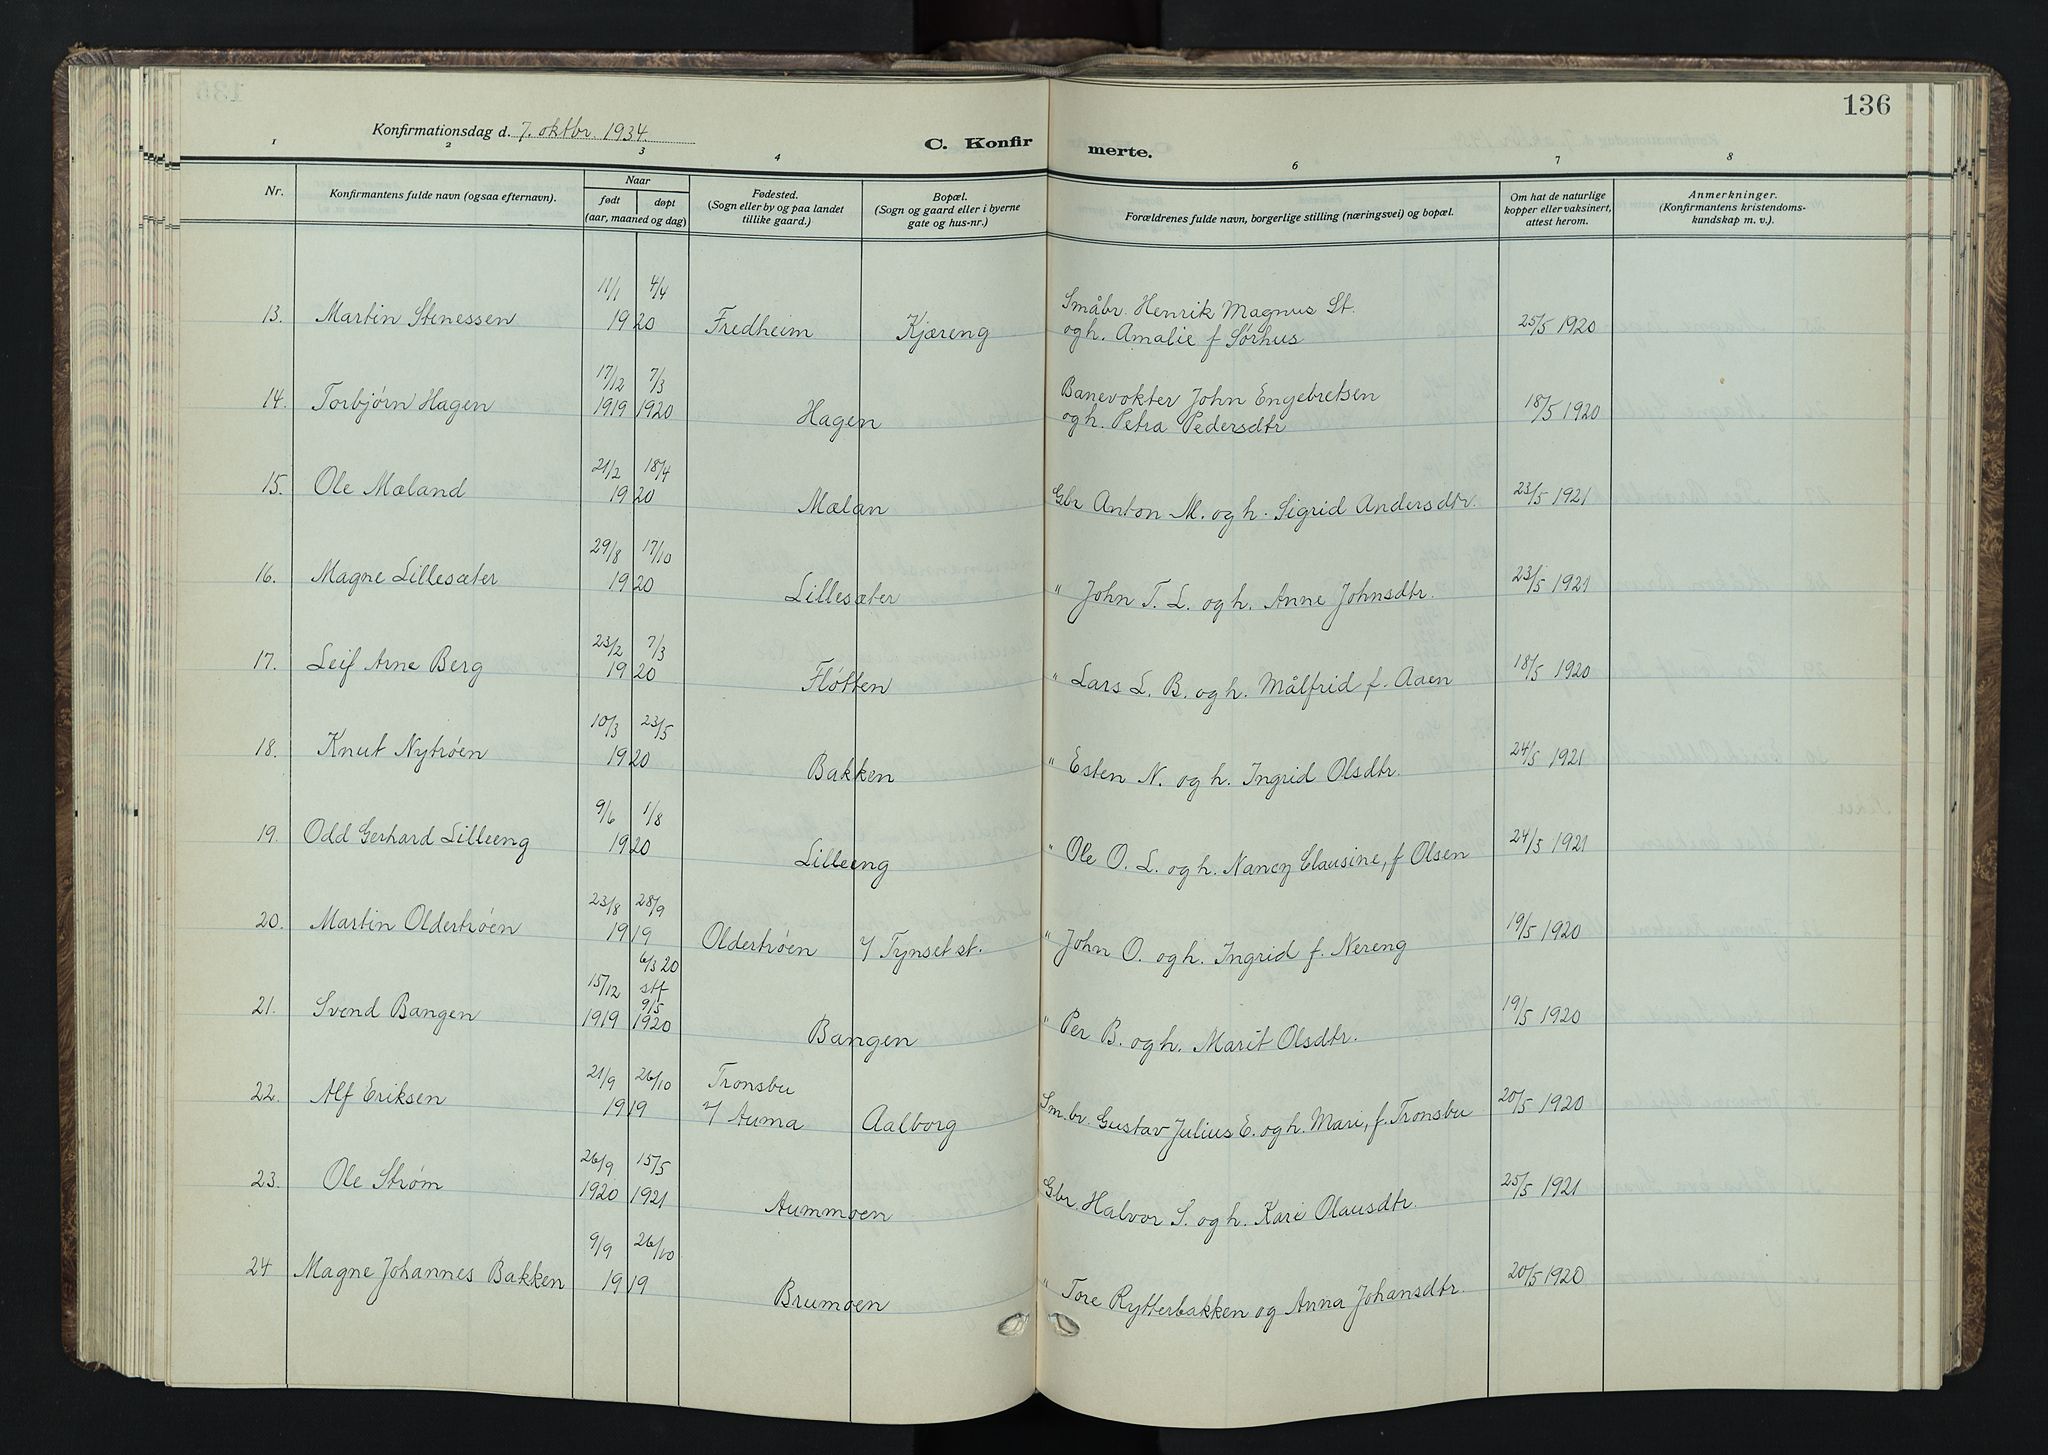 136
Konfirmationsdag d. 7. oktbr. 1934.
C. Konfirmerte.
1 2 3 4 6 7 8
Nr.
Konfirmantens fulde navn (ogsaa efternavn).
Naar
født døpt
(aar, maaned og dag)
Fødested.
(Sogn eller by og paa landet
tillike gaard.)
Bopæl.
(Sogn og gaard eller i byerne
gate og hus-nr.)
Forældrenes fulde navn, borgerlige stilling (næringsvei) og bopæl.
Om hat de naturlige
kopper eller vaksinert,
attest herom.
Anmerkninger.
(Konfirmantens kristendoms-
kundskap m. v.).
11/1 4/4 Småbr. Henrik Magnus St.
13. Martin Stenessen 1920 Fredheim Kjæreng og h. Amalie f Sørhus 25/5 1920
17/12 7/3 Banevokter John Engebretsen
14. Torbjørn Hagen 1919 1920 Hagen og h. Petra Pedersdtr 18/5 1920
21/2 18/4
15. Ole Mæland 1920 Mælan Gbr Anton M. og h. Sigrid Andersdtr. 23/5 1921
29/8 17/10
16. Magne Lillesæter 1920 Lillesæter " John T. L. og h. Anne Johnsdtr. 23/5 1921
23/2 7/3
17. Leif Arne Berg 1920 Fløtten " Lars L. B. og h. Målfrid f. Aaen 18/5 1920
10/3 23/5
18. Knut Nytrøen 1920 Bakken " Esten N. og h. Ingrid Olsdtr. 24/5 1921
9/6 1/8
19. Odd Gerhard Lilleeng 1920 Lilleeng " Ole O. L. og h. Nancy Clausine, f Olsen 24/5 1921
23/8 28/9
20. Martin Oldertrøen 1919 Oldertrøen Tynset st. " John O. og h. Ingrid f. Nereng 19/5 1920
6/3 20
15/12 stf
9/5
21. Svend Bangen 1919 1920 Bangen " Per B. og h. Marit Olsdtr. 19/5 1920
21/9 26/10 Tronsbu
22. Alf Eriksen 1919 Auma Aalborg Sm.br. Gustav Julius E. og h. Mari, f. Tronsbu 20/5 1920
26/9 15/5
23. Ole Strøm 1920 1921 Aummoen Gbr. Halvor S. og h. Kari Olausdtr. 25/5 1921
9/9 26/10
24 Magne Johannes Bakken 1919 Brumoen " Tore Rytterbakken og Anna Johansdtr. 20/5 1920